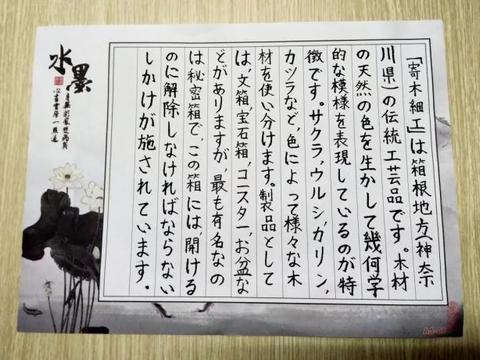 「寄木細工」は箱根地方(神奈
川県)の伝統工芸品です。木材
の天然の色を生かして幾何学
的な模様を表現しているのが特
徴です。サクラ、ウルシ、ガリン、
カツラなど、色によって様々な木
材を使い分けます。製品として
は、文箱、宝石箱、コースター、お盆な
どがありますが、最も有名なの
は秘密箱で、この箱には、開ける
のに解除しなければならない
しかけが施されています。
水墨